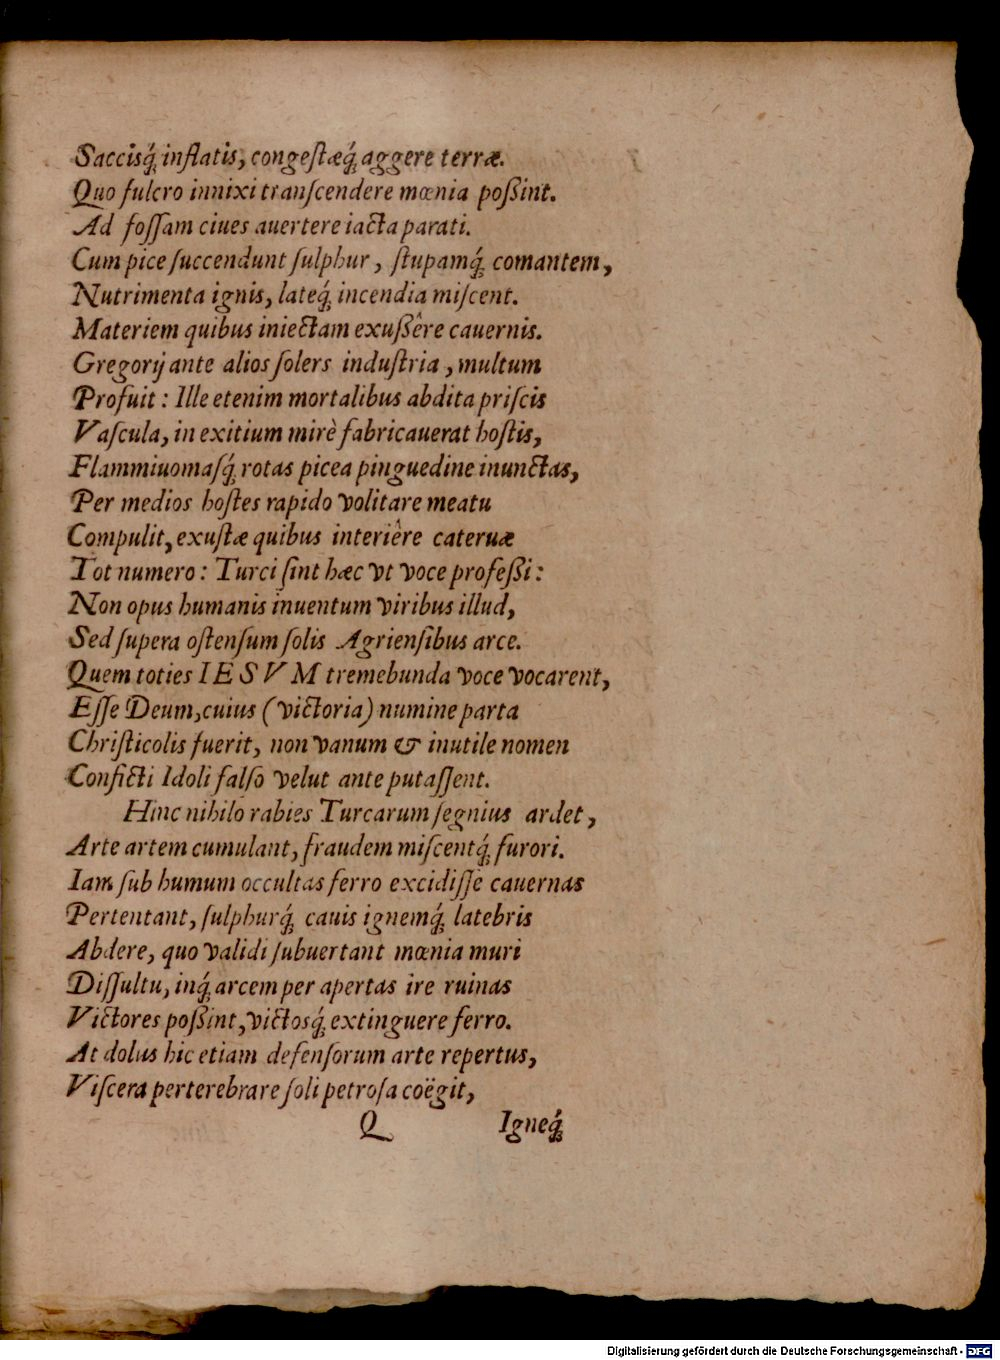 Saccisq́; inflatis, congeſtæq́; aggere terræ.
Quo fulcro innixi tranſcendere mœnia poßint.
Ad foſſam ciues auertere iacta parati.
Cum pice ſuccendunt ſulphur, ſtupamq́; comantem,
Nutrimenta ignis, lateq́; incendia miſcent.
Materiem quibus iniectam exußêre cauernis.
Gregorij ante alios ſolers induſtria, multum
Profuit: Ille etenim mortalibus abdita priſcis
Vaſcula, in exitium mirè fabricauerat hoſtis,
Flammiuomaſq́; rotas picea pinguedine inunctas,
Per medios hoſtes rapido volitare meatu
Compulit, exuſtæ quibus interiêre cateruæ
Tot numero: Turci ſint hæc vt voce profeßi:
Non opus humanis inuentum viribus illud,
Sed ſupera oſtenſum ſolis Agrienſibus arce.
Quem toties IESVM tremebunda voce vocarent,
Eſſe Deum, cuius (victoria) numine parta
Chriſticolis fuerit, non vanum & inutile nomen
Conficti Idoli falſo velut ante putaſſent.
Hinc nihilo rabies Turcarum ſegnius ardet,
Arte artem cumulant, fraudem miſcentq́; furori.
Iam ſub humum occultas ferro excidiſſe cauernas
Pertentant, ſulphurq́; cauis ignemq́; latebris
Abdere, quo validi ſubuertant mœnia muri
Diſſultu, inq́; arcem per apertas ire ruinas
Victores poßint, victosq́; extinguere ferro.
At dolus hic etiam defenſorum arte repertus,
Viſcera perterebrare ſoli petroſa coëgit,
Q Igneq́;
Digitalisierung gefördert durch die Deutsche Forschungsgemeinschaft - DFG